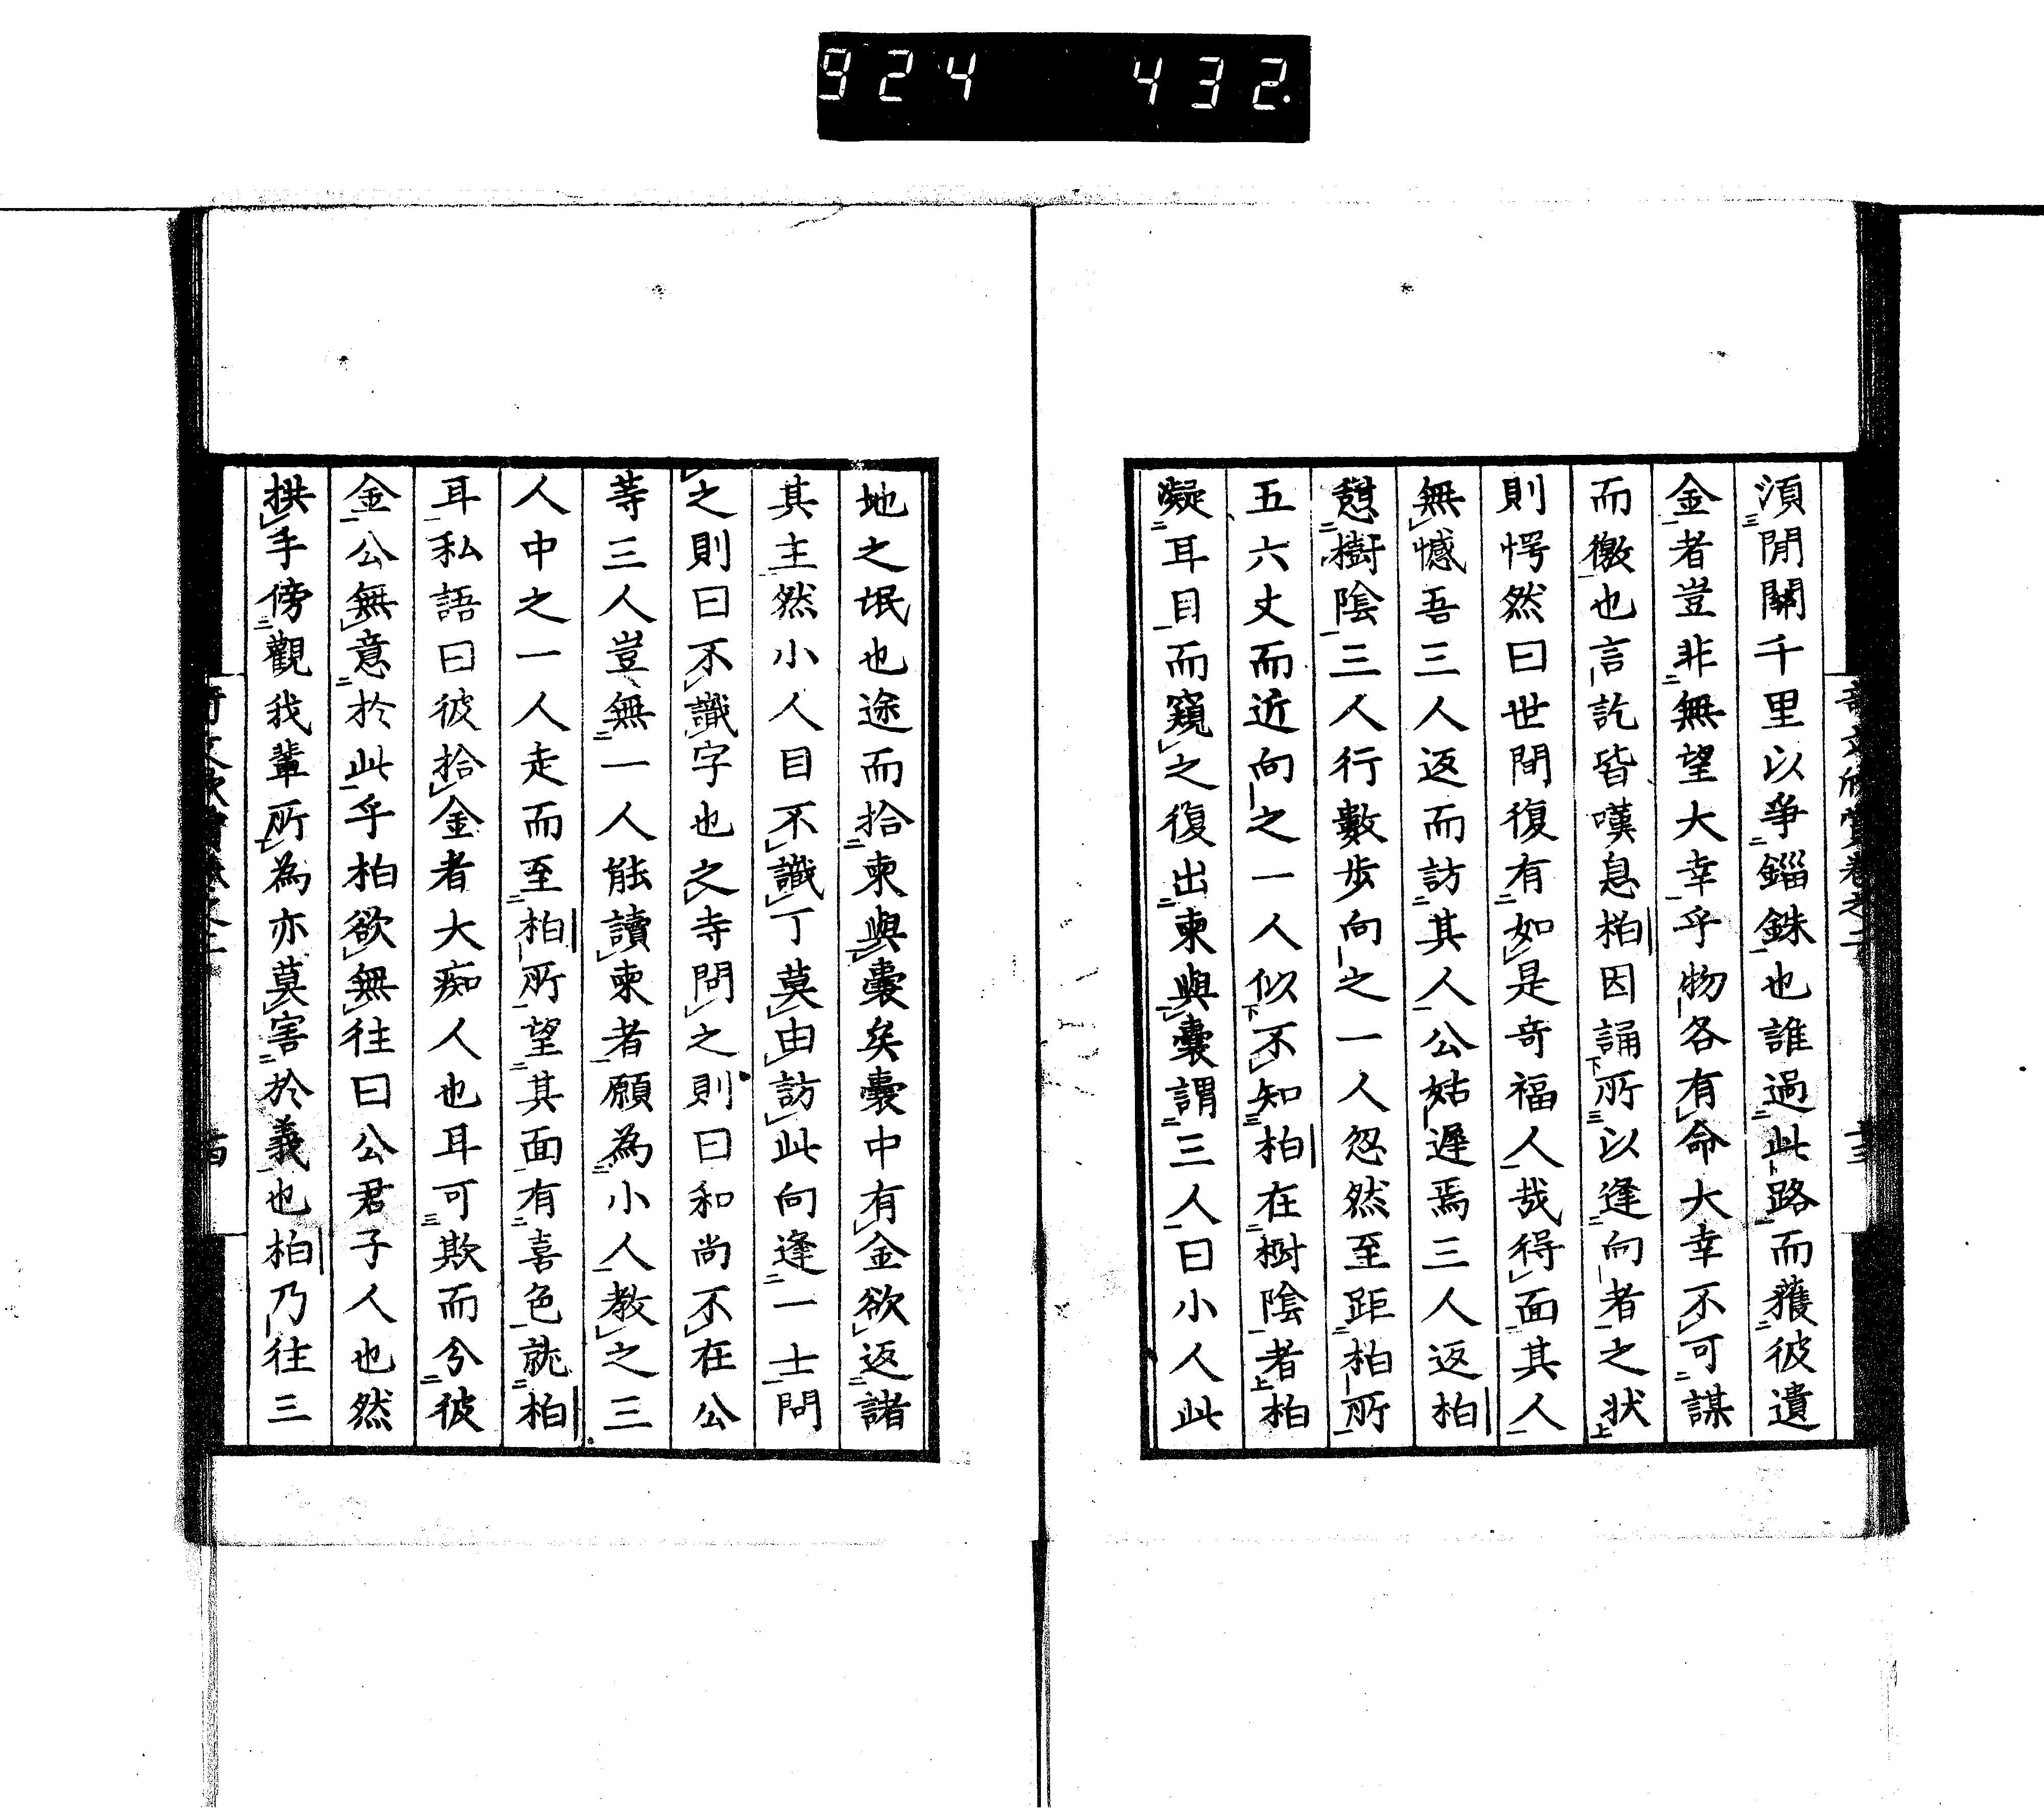 924 432.
湏閒關千里以爭錙銖也誰過此路而獲彼遺
金者豈非無望大幸乎物各有命大幸不可謀
而徼也言訖皆嘆息柏因誦所以逢向者之状
則愕然曰世間復有如是奇福人哉得面其人
無憾吾三人返而訪其人公姑遲焉三人返柏
憇樹陰三人行數步向之一人忽然至距柏所
五六丈而近向之一人似不知柏在樹陰者柏
凝耳目而窺之復出柬與囊謂三人曰小人此
地之氓也途而拾柬與囊矣囊中有金欲返諸
其主然小人目不識丁莫由訪此向逢一士問
之則曰不識字也之寺問之則曰和尚不在公
等三人豈無一人能讀柬者願為小人教之三
人中之一人走而至柏所望其面有喜色就柏
耳私語曰彼拾金者大痴人也耳可欺而分彼
金公無意於此乎柏欲無往曰公君子人也然
拱手傍觀我輩所為亦莫害於義也柏乃往三